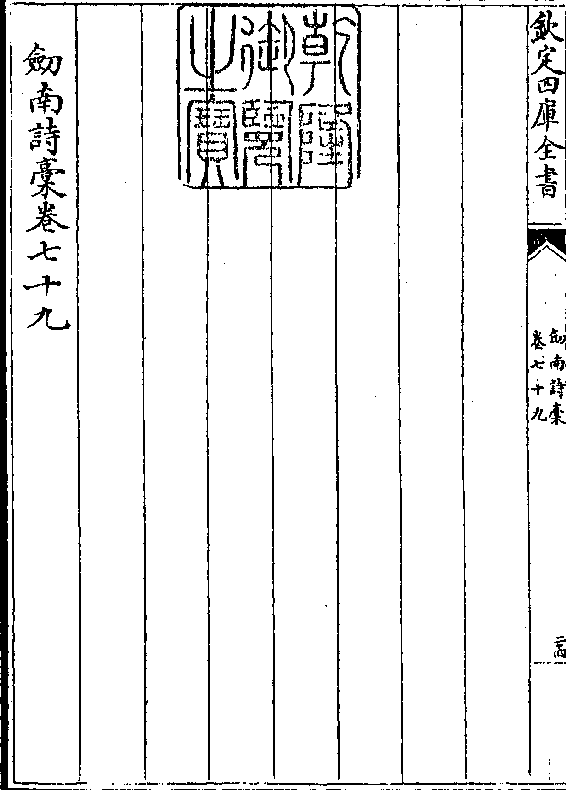 欽定四庫全書
劒南詩稾
卷七十九
乾隆
御覽
之寶
劒南詩稾卷七十九